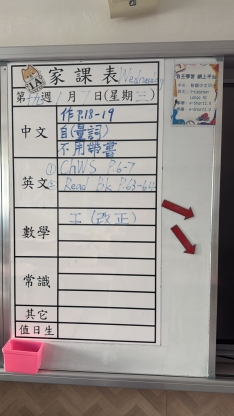 1A
家課表
Wednesday
第十九週 1月7日(星期三)
中文
作P.18-19
自(量詞)
不用帶書
英文
① ChWS P.6-7
② Read bk P.63-64
數學
工(改正)
常識
其它
值日生
自主學習 網上平台